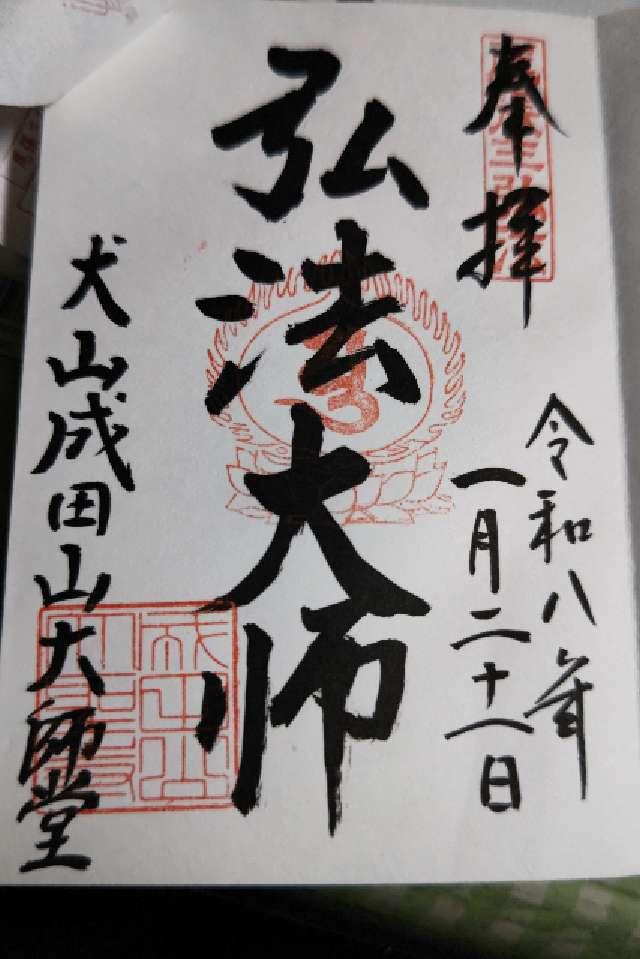 奉拝
令和八年
一月二十一日
弘法大師
犬山成田山大師堂